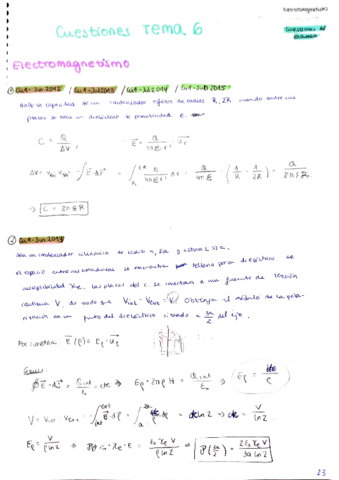 Electromagnetismo
Cuestiones Tema 6
CUESTIONES DE EXAMEN
Electromagnetismo
① Cu4-Jun 2012 / Cu4-Jul 2013 / Cu4-Jul 2014 / Cu4-Jul 2015
Halle la capacidad de un condensador esférico de radios R, 2R cuando entre sus
placas se tiene un dieléctrico de permitividad ε.
C = Q/ΔV ; E⃗ = Q/4πεr² · u⃗r
ΔV = Vint - Vext = ∫E⃗·dr⃗ = ∫ Q/4πεr² dr = Q/4πε · (1/R - 1/2R) = Q/8πεR
⇒ C = 8πεR
② Cu4-Jun 2013
Sea un condensador cilíndrico de radios a, 2a y altura L>>a.
El espacio entre conductores se encuentra relleno por un dieléctrico de
susceptibilidad χe. Las placas del c. se conectan a una fuente de tensión
continua V, de modo que Vint - Vext = V. Obtenga el módulo de la pola-
rización en un punto del dieléctrico situado a 3a/2 del eje.
Por simetría: E⃗(ρ) = Eρ · u⃗ρ
Gauss:
∮E⃗·dS⃗ = Qint/εo = cte ⇒ Eρ · 2πρH = Qint/εo ⇒ Eρ = cte/ρ
V = Vint - Vext = ∫E⃗·dρ⃗ = ∫ cte/ρ dρ = cte ln2 ⇒ cte = V/ln2
Eρ = V/ρ ln2 ⇒ P = εo · χe · E = εo χe V/ρ ln2 ⇒ P(3a/2) = 2 εo χe V/3a ln2
23